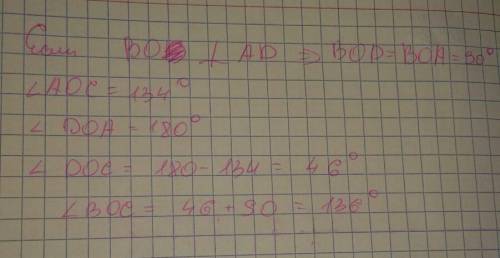 Если BO ⊥ AD ⇒ BOD = BOA = 90°
∠AOC = 134°
∠DOA = 180°
∠DOC = 180 - 134 = 46°
∠BOC = 46 + 90 = 136°